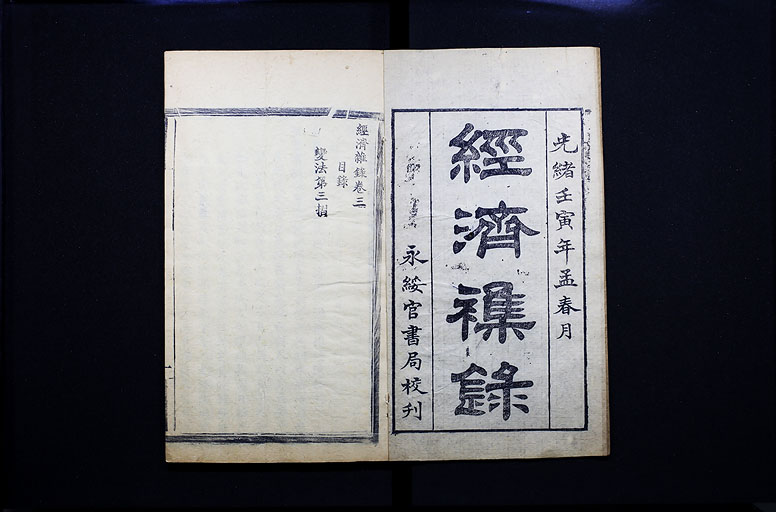 光緒壬寅年孟春月
經濟襍錄
永綏官書局校刊
經濟雜錄卷三
目錄
變法第三摺